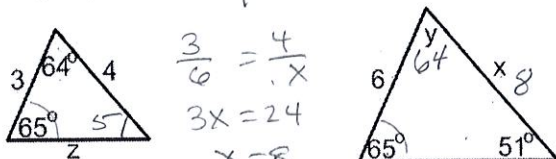 3 64° 4
65° 51
z
3/6 = 4/x
3x = 24
x = 8
6 y 64 x 8
65° 51°